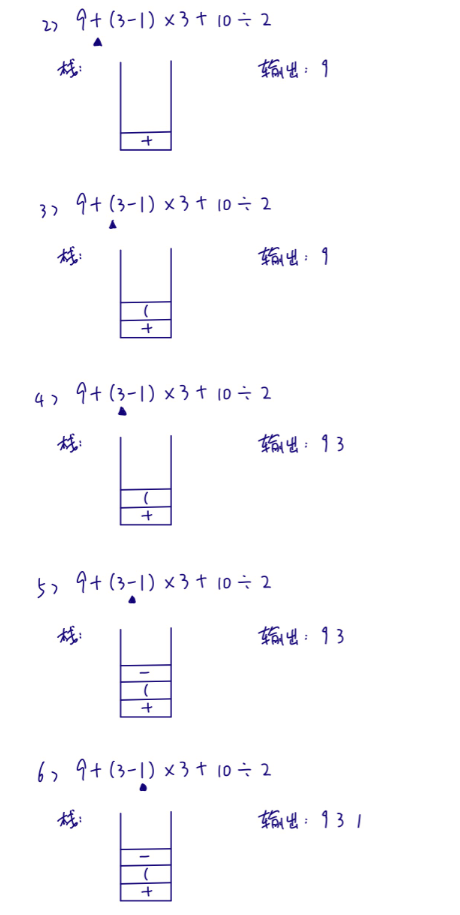 2) 9+(3-1)×3+10÷2
栈: 输出: 9
+
3) 9+(3-1)×3+10÷2
栈: 输出: 9
(
+
4) 9+(3-1)×3+10÷2
栈: 输出: 9 3
(
+
5) 9+(3-1)×3+10÷2
栈: 输出: 9 3
-
(
+
6) 9+(3-1)×3+10÷2
栈: 输出: 9 3 1
-
(
+